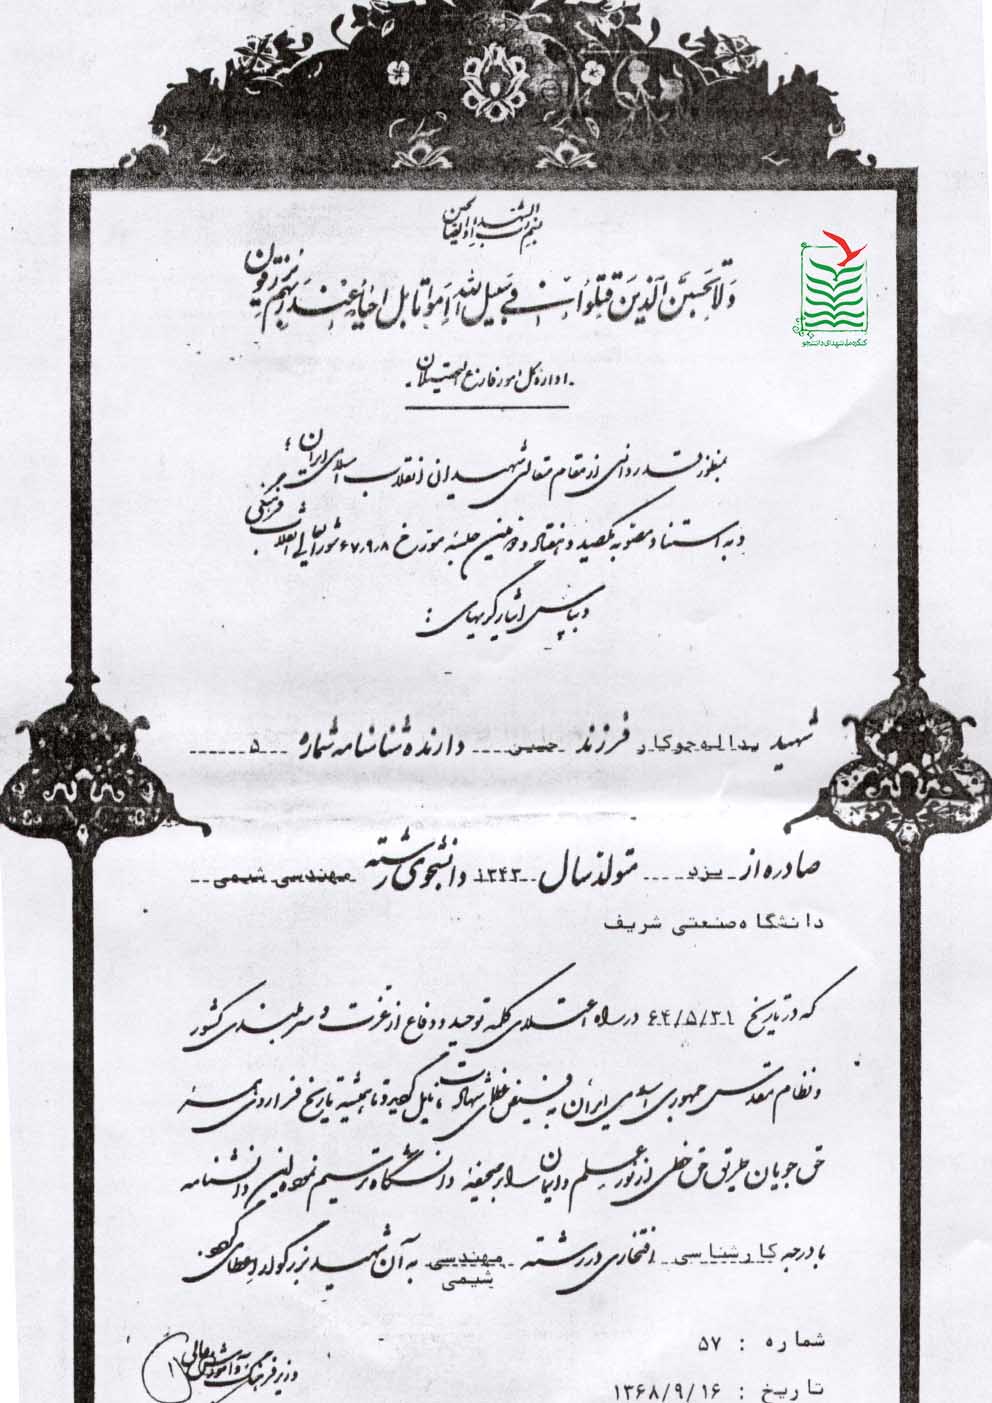 بسم رب الشهداء و الصالحین
ولا تحسبن الذین قتلوا فی سبیل الله امواتا بل احیاء عند ربهم یرزقون
کنگره ملی شهدای دانشجو
اداره کل امور فارغ التحصیلان
بمنظور قدردانی از مقام متعالی شهیدان انقلاب اسلامی ایران ؛
و به استناد مصوبه یکصد و هفتاد و دومین جلسه مورخ ۶۷٫۹٫۸ شورایعالی انقلاب فرهنگی
و بپاس ایثارگریهای :
شهید یداله جوکار فرزند حسین دارنده شناسنامه شماره ۵
صادره از یزد متولد سال ۱۳۴۳ دانشجوی رشته مهندسی شیمی
دانشگاه صنعتی شریف
که در تاریخ ۶۴/۵/۳۱ در راه اعتلای کلمه توحید و دفاع از عزت و سربلندی کشور
و نظام مقدس جمهوری اسلامی ایران به فیض عظمای شهادت نایل گردید و تا همیشه تاریخ فرا روی همه
حق جویان طریق حق خطی از نور علم و ایمان را بر صحیفه دانشگاه ترسیم نمود این دانشنامه
با درجه کارشناسی افتخاری در رشته مهندسی شیمی به آن شهید بزرگوار اعطا می گردد.
شماره : ۵۷
تاریخ : ۱۳۶۸/۹/۱۶
وزیر فرهنگ و آموزش عالی